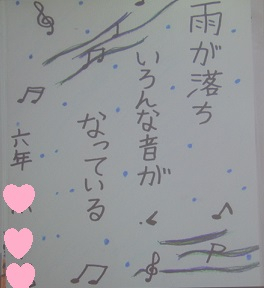 雨が落ち
いろんな音が
なっている
六年